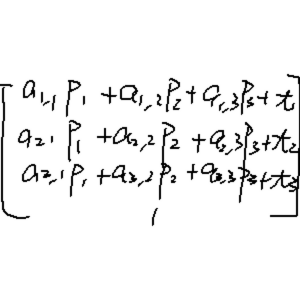 a_{1,1} p_1 + a_{1,2} p_2 + a_{1,3} p_3 + t_1
a_{2,1} p_1 + a_{2,2} p_2 + a_{2,3} p_3 + t_2
a_{2,1} p_1 + a_{3,2} p_2 + a_{3,3} p_3 + t_3
1